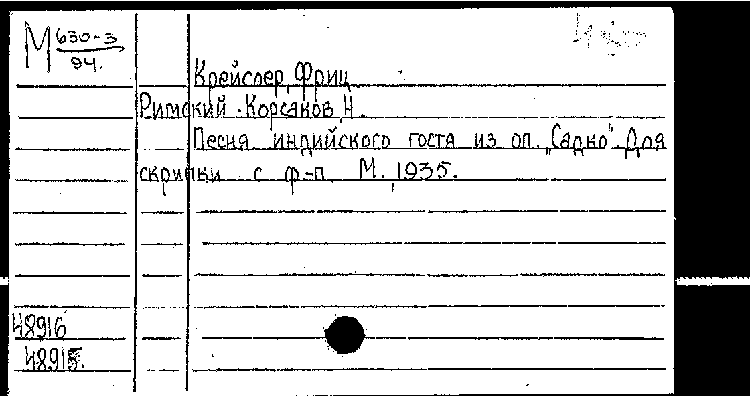 М 630-3
94.
Крейслер, Фриц
Римский-Корсаков, Н.
Песня индийского гостя из оп. „Садко". Для
скрипки с ф-п. М., 1935.
48916
48915.